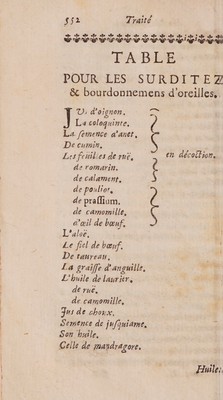 552 Traité
TABLE
POUR LES SURDITEZ
& bourdonnemens d'oreilles.
JUs d'oignon.
La coloquinte.
La semence d'anet.
De cumin.
Les feuilles de ruë. en décoction.
de romarin.
de calament.
de pouliot.
de prassium.
de camomille.
d'œil de bœuf.
L'aloë.
Le fiel de bœuf.
De taureau.
La graisse d'anguille.
L'huile de laurier.
de ruë.
de camomille.
Jus de choux.
Semence de jusquiame.
Son huile.
Celle de mandragore.
Huile